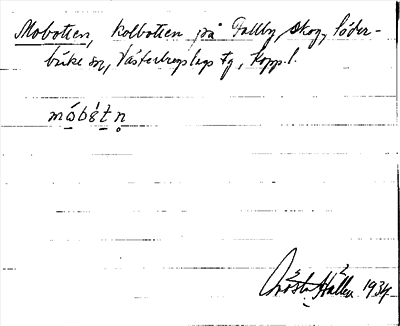 Mobotten, kolbotten på Fallby skog, Söder-
bärke sn, Västerbergslags tg, Kopp.l.
móbèt n̥
Gösta Hallén 1934